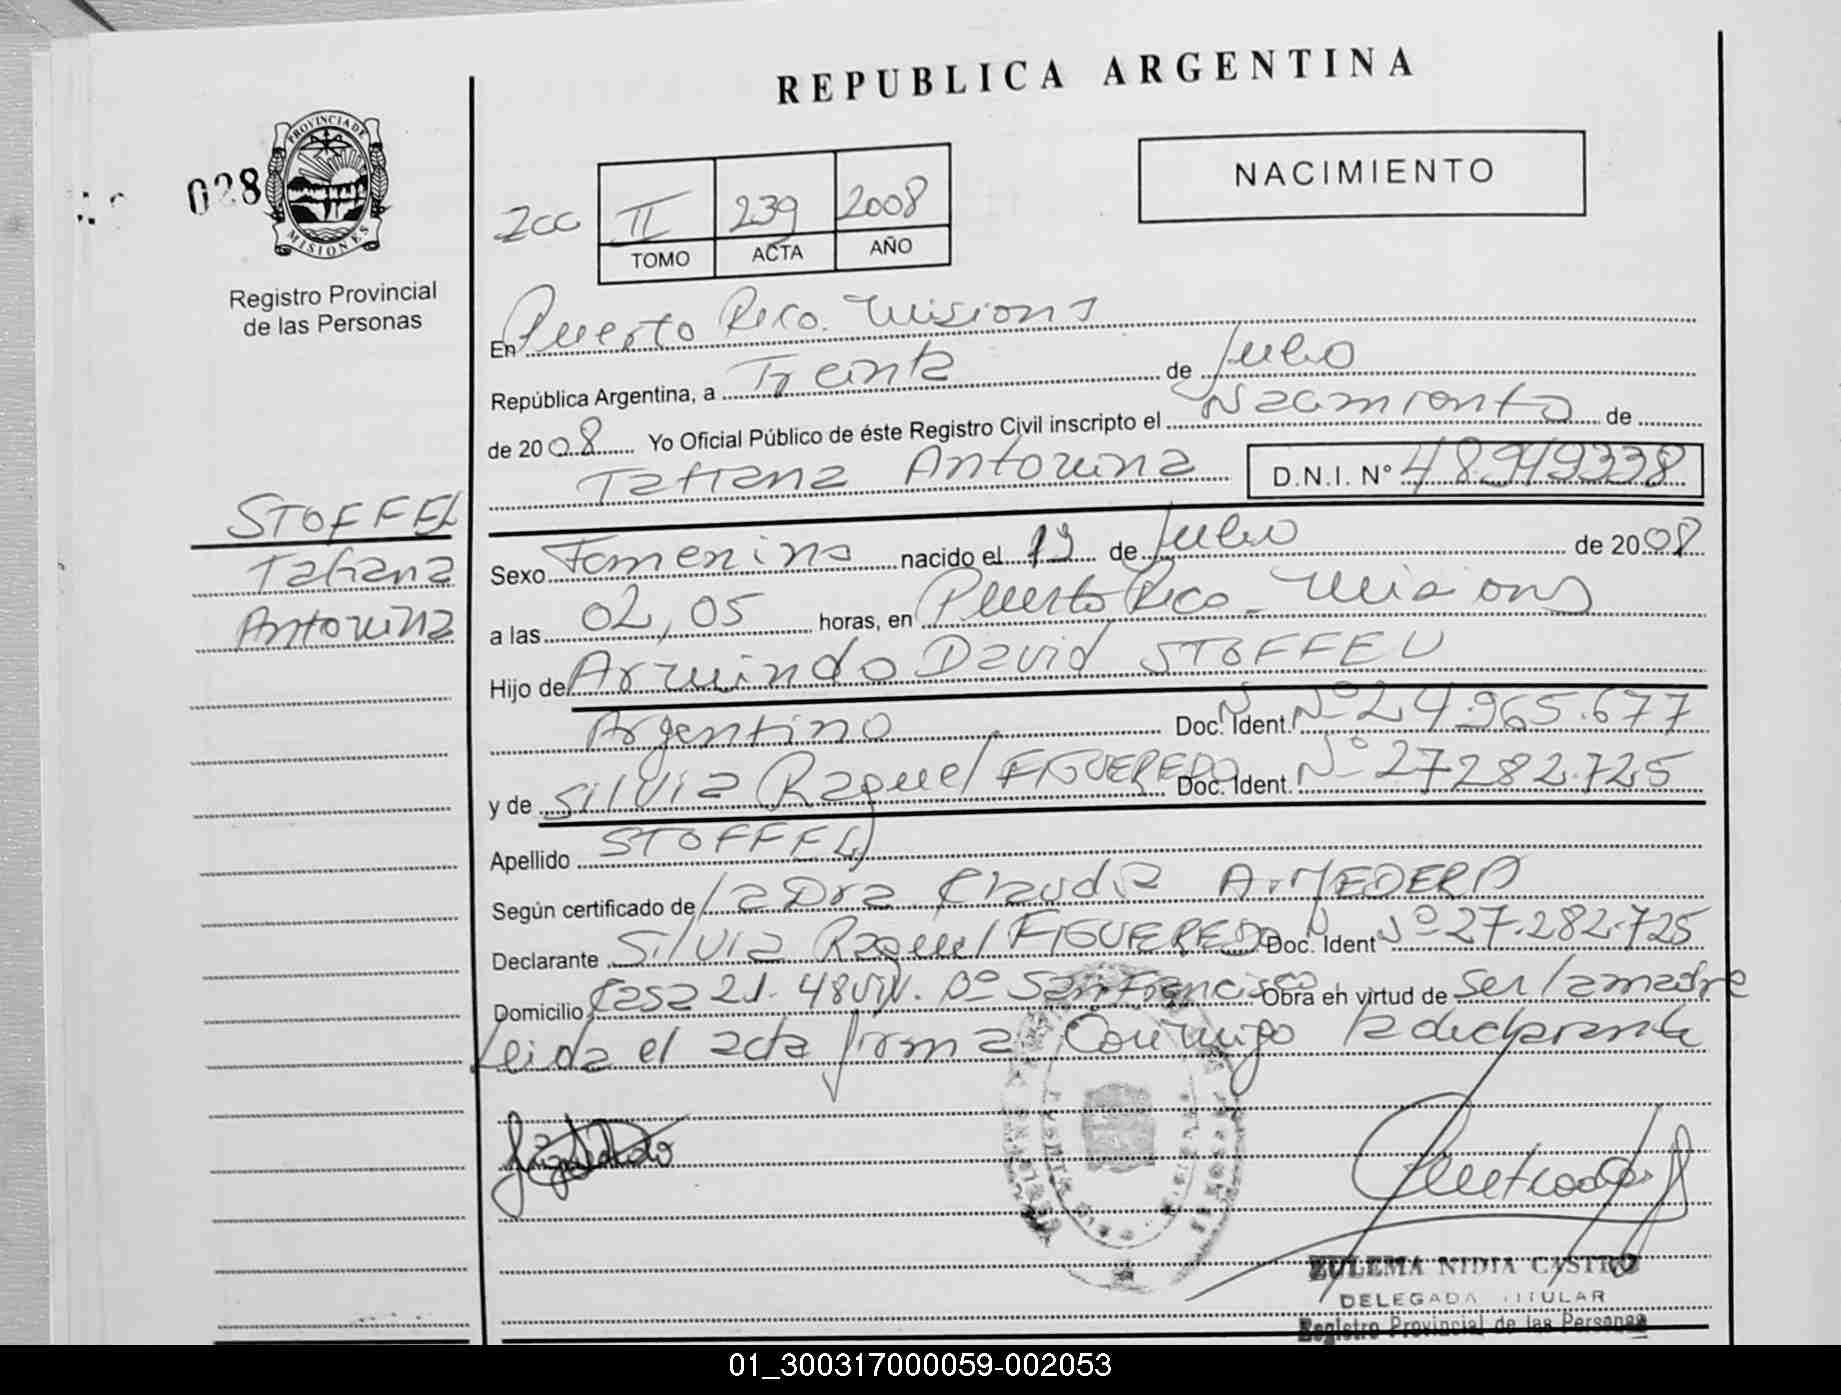 REPUBLICA ARGENTINA
PROVINCIA DE
MISIONES
028
Registro Provincial
de las Personas
NACIMIENTO
II 239 2008
TOMO ACTA AÑO
En Puerto Rico. Misiones
República Argentina, a Treinta de Julio
de 2008 Yo Oficial Público de éste Registro Civil inscripto el Nacimiento de
Tatiana Antonina D.N.I. Nº 48.949338
STOFFEL
Tatiana
Antonina
Sexo Femenino nacido el 19 de Julio de 2008
a las 02,05 horas, en Puerto Rico - Misiones
Hijo de Armindo David STOFFEL
Argentino Doc. Ident. Nº 24.965.677
y de Silvia Raquel FIGUEREDO Doc. Ident. Nº 27282.725
Apellido STOFFEL
Según certificado de la Dra Claudia A. MEDERA
Declarante Silvia Raquel FIGUEREDO Doc. Ident Nº 27.282.725
Domicilio Casa 21. 48 Viv. Bº San Francisco Obra en virtud de ser la madre
Leida el acta firma conmigo la declarante
ZULEMA NIDIA CASTRO
DELEGADA TITULAR
Registro Provincial de las Personas
01_300317000059-002053